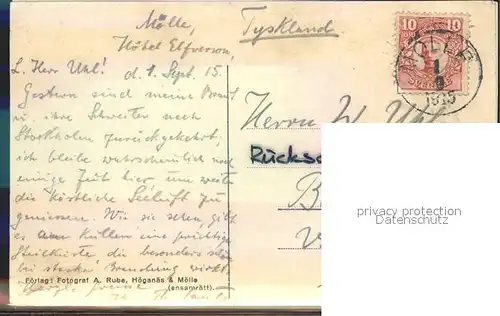 Mölle,
Hôtel Elfverson,
Tyskland
10 10
MÖLLE
1
9
1915
SVERIGE
L. Herr Uhl! d. 1. Sept. 15.
Gestern sind meine Braut
u. ihre Schwester nach
Stockholm zurückgekehrt;
ich bleibe wahrscheinlich noch
einige Zeit hier um weiter
die köstliche Seeluft zu
geniessen. Wie sie sehen, gibt
es am Kullen eine prächtige
Steilküste, die besonders schön
bei starker Brandung wirkt.
Herzl. Grüsse
Herrn W. Uhl
Rücks
B
privacy protection
Datenschutz
Förlag: Fotograf A. Rube, Höganäs & Mölle
(ensamrätt).